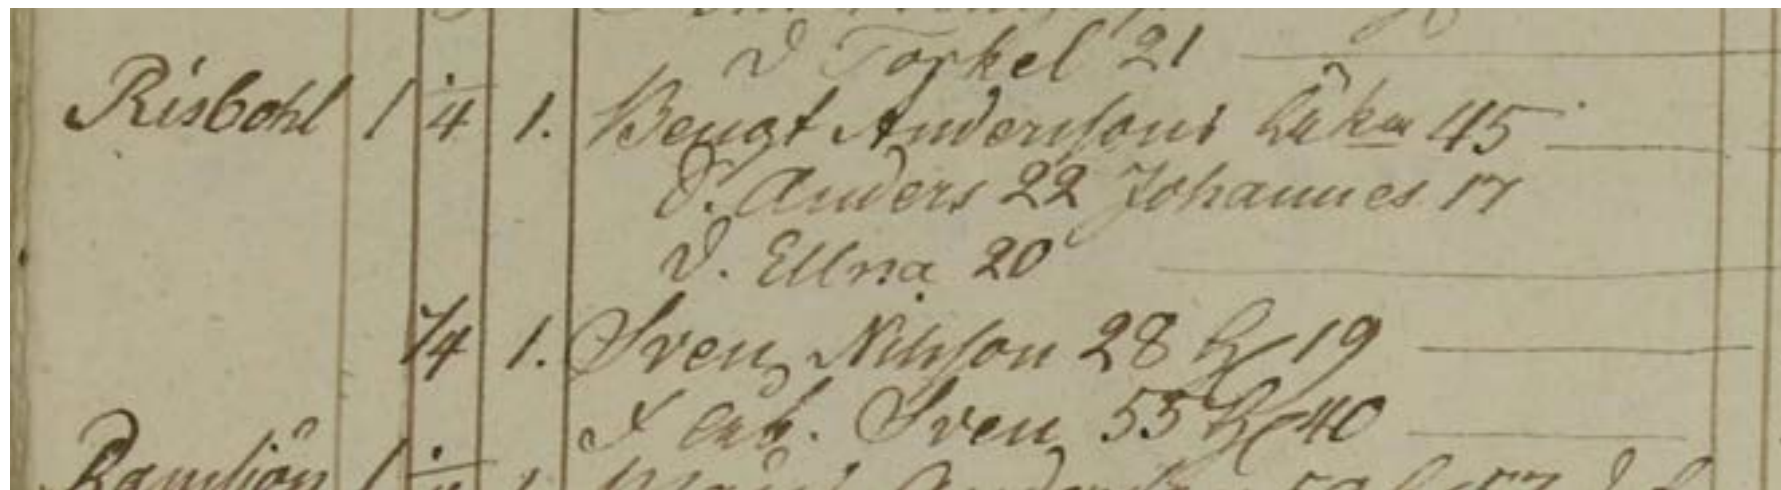 D Torkel 21
Risbohl 1 1/4 1. Bengt Anderssons Enka 45
D. Anders 22 Johannes 17
D. Ellna 20
1/4 1. Sven Nilsson 28 h 19
Sven 55 h 40
Ramsjön 1 1.